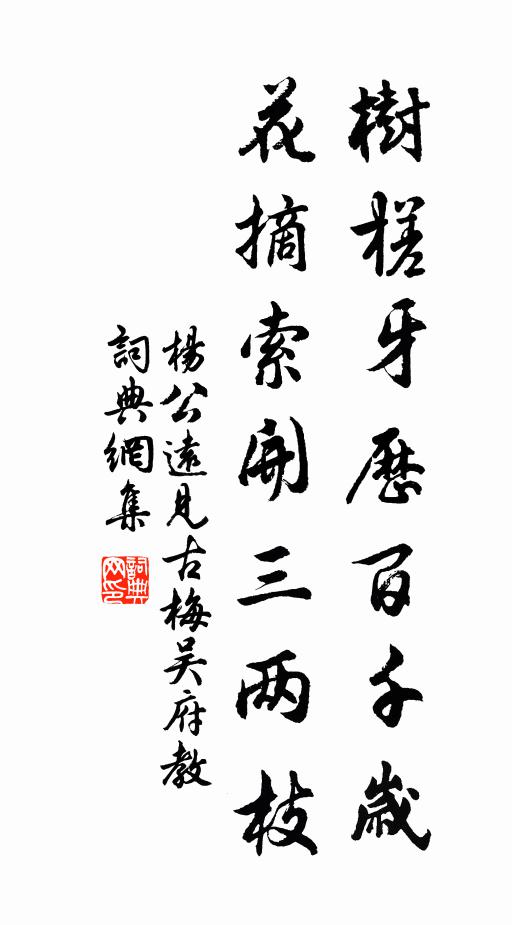 樹槎牙歷百千歲
花摘索開三两枝
楊公遠見古梅吴府教
詞典網集
詞典网印